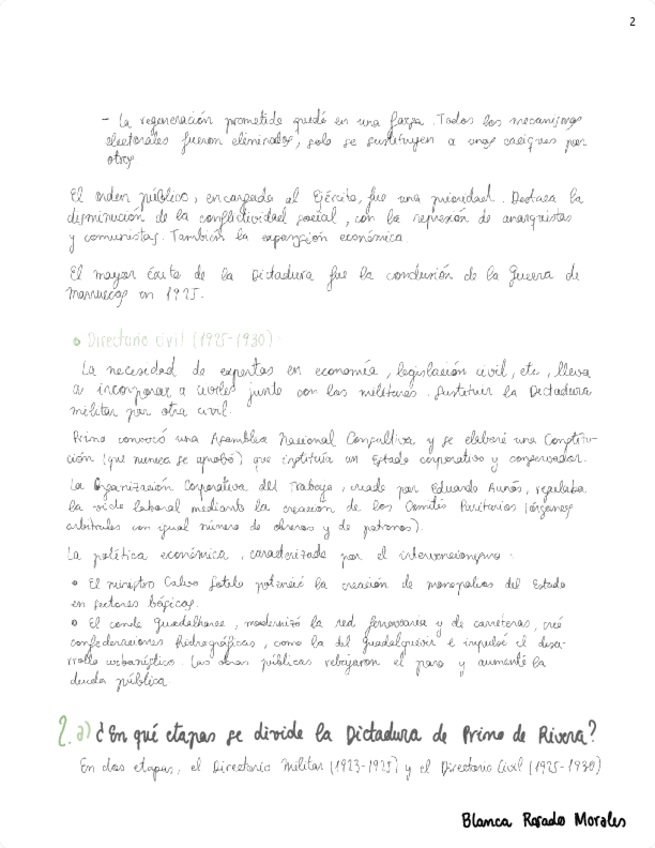 2
- La regeneración prometida quedó en una farsa. Todos los mecanismos
electorales fueron eliminados, solo se sustituyen a unos caciques por
otros
El orden público, encargado al Ejército, fue una prioridad. Destaca la
disminución de la conflictividad social, con la represión de anarquistas
y comunistas. También la expansión económica.
El mayor éxito de la Dictadura fue la conclusión de la Guerra de
Marruecos en 1925.
• Directorio civil (1925-1930):
La necesidad de expertos en economía, legislación civil, etc, lleva
a incorporar a civiles junto con los militares. Sustituir la Dictadura
militar por otra civil.
Primo convocó una Asamblea Nacional Consultiva y se elaboró una Constitu-
ción (que nunca se aprobó) que instituía un Estado corporativo y conservador.
La Organización Corporativa del Trabajo, creada por Eduardo Aunós, regulaba
la vida laboral mediante la creación de los Comités Paritarios (órganos
arbitrales con igual número de obreros y de patronos).
La política económica, caracterizada por el intervencionismo:
• El ministro Calvo Sotelo potenció la creación de monopolios del Estado
en sectores básicos.
• El conde Guadalhorce, modernizó la red ferroviaria y de carreteras, creó
confederaciones hidrográficas, como la del Guadalquivir e impulsó el desa-
rrollo urbanístico. Las obras públicas rebajaron el paro y aumentó la
deuda pública.
2. a) ¿En qué etapas se divide la Dictadura de Primo de Rivera?
En dos etapas, el Directorio Militar (1923-1925) y el Directorio Civil (1925-1930)
Blanca Rosado Morales